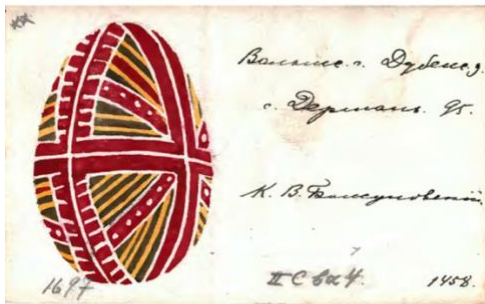 Волынс. г. Дубенс. у.
с. Дермань. 95.
К. В. Болсуновский.
1697
II C 6α4.
1458.